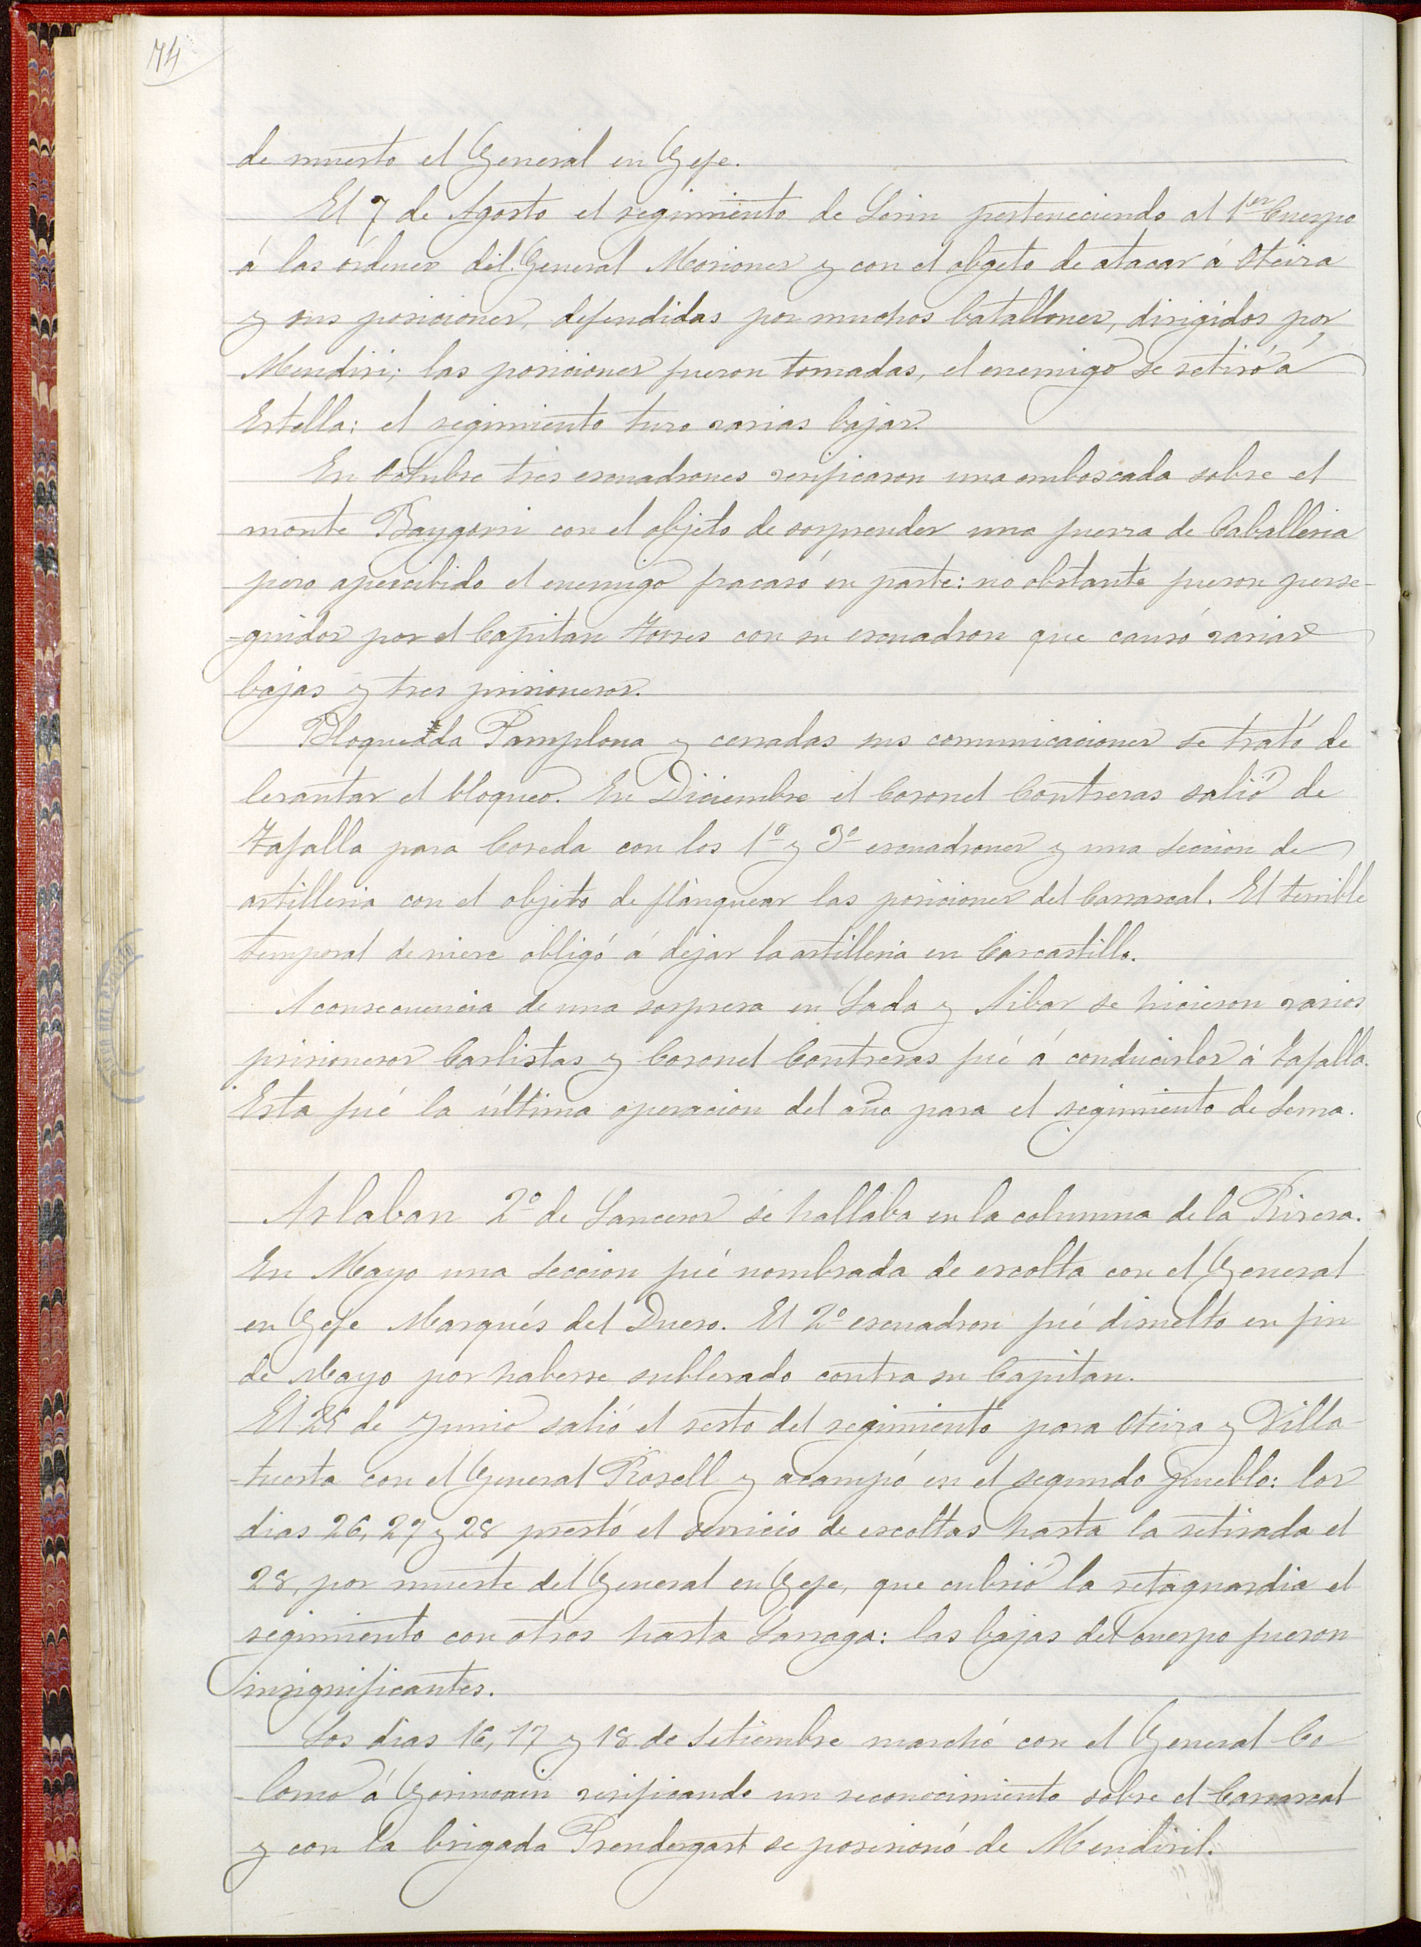 74
de muerto el General en Gefe.
El 7 de Agosto el regimiento de Lerin perteneciendo al 1er Cuerpo
á las órdenes del General Moriones y con el objeto de atacar á Oteiza
y sus posiciones, defendidas por muchos batallones, dirigidos por
Mendiri; las posiciones fueron tomadas, el enemigo se retiró á
Estella: el regimiento tuvo varias bajas.
En Octubre tres escuadrones verificaron una emboscada sobre el
monte Baygorri con el objeto de sorprender una fuerza de Caballeria
pero apercibido el enemigo fracasó en parte: no obstante fueron perse-
-guidos por el Capitan Torres con su escuadron que causó varias
bajas y tres prisioneros.
Bloqueada Pamplona y cerradas sus comunicaciones se trató de
levantar el bloqueo. En Diciembre el Coronel Contreras salió de
Tafalla para Coreda con los 1º y 3º escuadrones y una seccion de
artilleria con el objeto de flanquear las posiciones del Carrascal. El terrible
temporal de nieve obligó á dejar la artilleria en Carcastillo.
A consecuencia de una sorpresa en Lada y Aibar se hicieron varios
prisioneros Carlistas y Coronel Contreras fué á conducirlos á Tafalla.
Esta fué la última operacion del año para el regimiento de Lema.
Arlaban 2º de Lanceros se hallaba en la columna de la Rivera.
En Mayo una seccion fué nombrada de escolta con el General
en Gefe Marqués del Duero. El 2º escuadron fué disuelto en fin
de Mayo por haberse sublevado contra su Capitan.
El 25 de Junio salió el resto del regimiento para Oteiza y Villa-
-tuerta con el General Rosell y acampó en el segundo pueblo: los
dias 26, 27 y 28 prestó el servicio de escoltas hasta la retirada el
28, por muerte del General en Gefe, que cubrió la retaguardia el
regimiento con otros hasta Larraga: las bajas del cuerpo fueron
insignificantes.
Los dias 16, 17 y 18 de Setiembre marchó con el General Co-
-lomo á Gorincain verificando un reconocimiento sobre el Carrascal
y con la brigada Prendergast se posesionó de Mendivil.